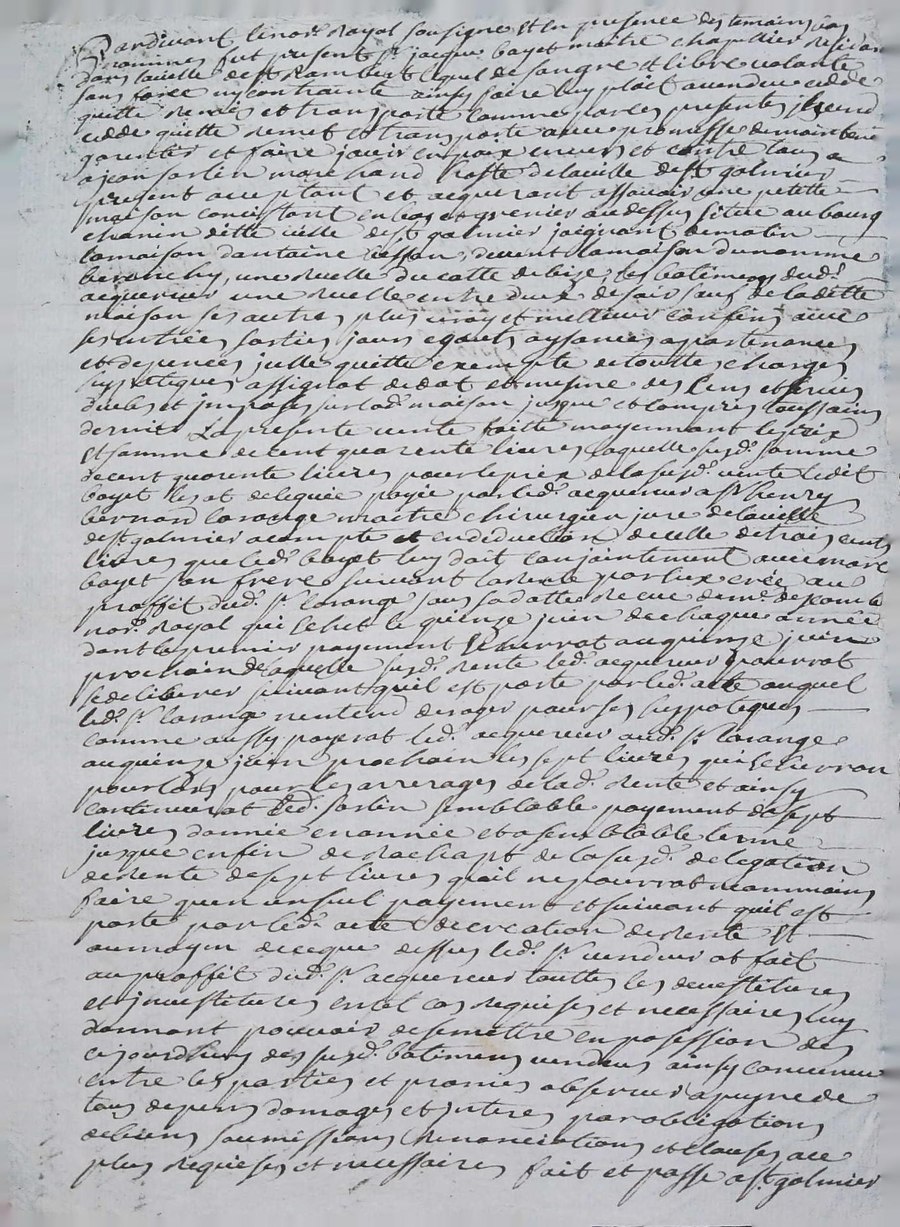 Pardevant le no.re Royal soussigne et en presence des temoins cy bas
nommes fut present s.r jacque boyet maitre chapellier residant
dans la ville de st Rambert lequel de son gre et libre volonte
sans force ny contrainte ainsy faire luy plait a vendu cedde
quitte remet et transporte comme par ces presentes jl vend
cedde quitte remet et transporte avec promesse de maintenir
garentir et faire jouir en paix envers et contre tous a
a jean sorlin marchand hoste de la ville de st galmier
present acceptant et acquerant assavoir une petitte
maison consistant en bas et grenier au dessus situe au bourg
chanin ditte ville de st galmier joignant de matin
la maison d'antoine besson, devent la maison du nomme
beronchy, une ruelle du cotte de bize, les batimens dud.
acquereur une ruelle entre deux de soir sauf de laditte
maison ses autres plus vray et meilleur confins avec
ses entrées sorties jours egouts aysances apartenances
et dependces jcelle quitte exempte de toutte charges
hypoteques assignat de dot et mesme des cens et servis
dues et jmposes sur lad. maison jusque et compris toussaint
dernier. La presente vente faitte moyennant le prix
et somme de cent quarente livres laquelle susd. somme
de cent quarente livres pour le prix de la susd. vente ledit
boyet les at deleguée payée par led. acquereur a s.r henry
bernard larange maitre chirurgien jure de la ville
de st galmier acompte et en diduction de celle de trois cents
livres que led. boyet luy doit conjointement avec marc
boyet son frere suivant la rente par eux crée au
proffit dud. s.r larange sous sa datte recue de m.e
no.re Royal qui echet le quinze juin de chaque année
dont le premier payement echerrat au quinze juin
prochain de laquelle susd. rente led. acquereur pourrat
se deliberer suivant quil est porte par led. acte auquel
led. s.r larange nentend deroger pour ses hyppoteques
comme aussy payerat led. acquereur aud. s.r larange
au quinze juin prochain les sept livres qui echerron
pour lors pour les arrerages de lad. rente et ainsy
continuerat led. sorlin semblable payement de sept
livres d'année en année et a semblable terme
jusque enfin de rachapt de la susd. delegation
de rente de sept livres quil ne pourrat neanmoins
faire quen un seul payement et suivant quil est
porte par led. acte de creation de rente et
au moyen de ce que dessus led. s.r vendeur at fait
au proffit dud. s.r acquereur touttes les devestitures
et jnvestitures en tel cas requises et necessaires luy
donnant pouvoir de se mettre en possession des
ce jourdhuy des susd. batimens vendus ainsy convenu
entre les parties et promis observer a peyne de
tous depens domages et jnterets par obligations
de biens soumissions renonciations et clauses au
plus requises et necessaires fait et passe a st galmier